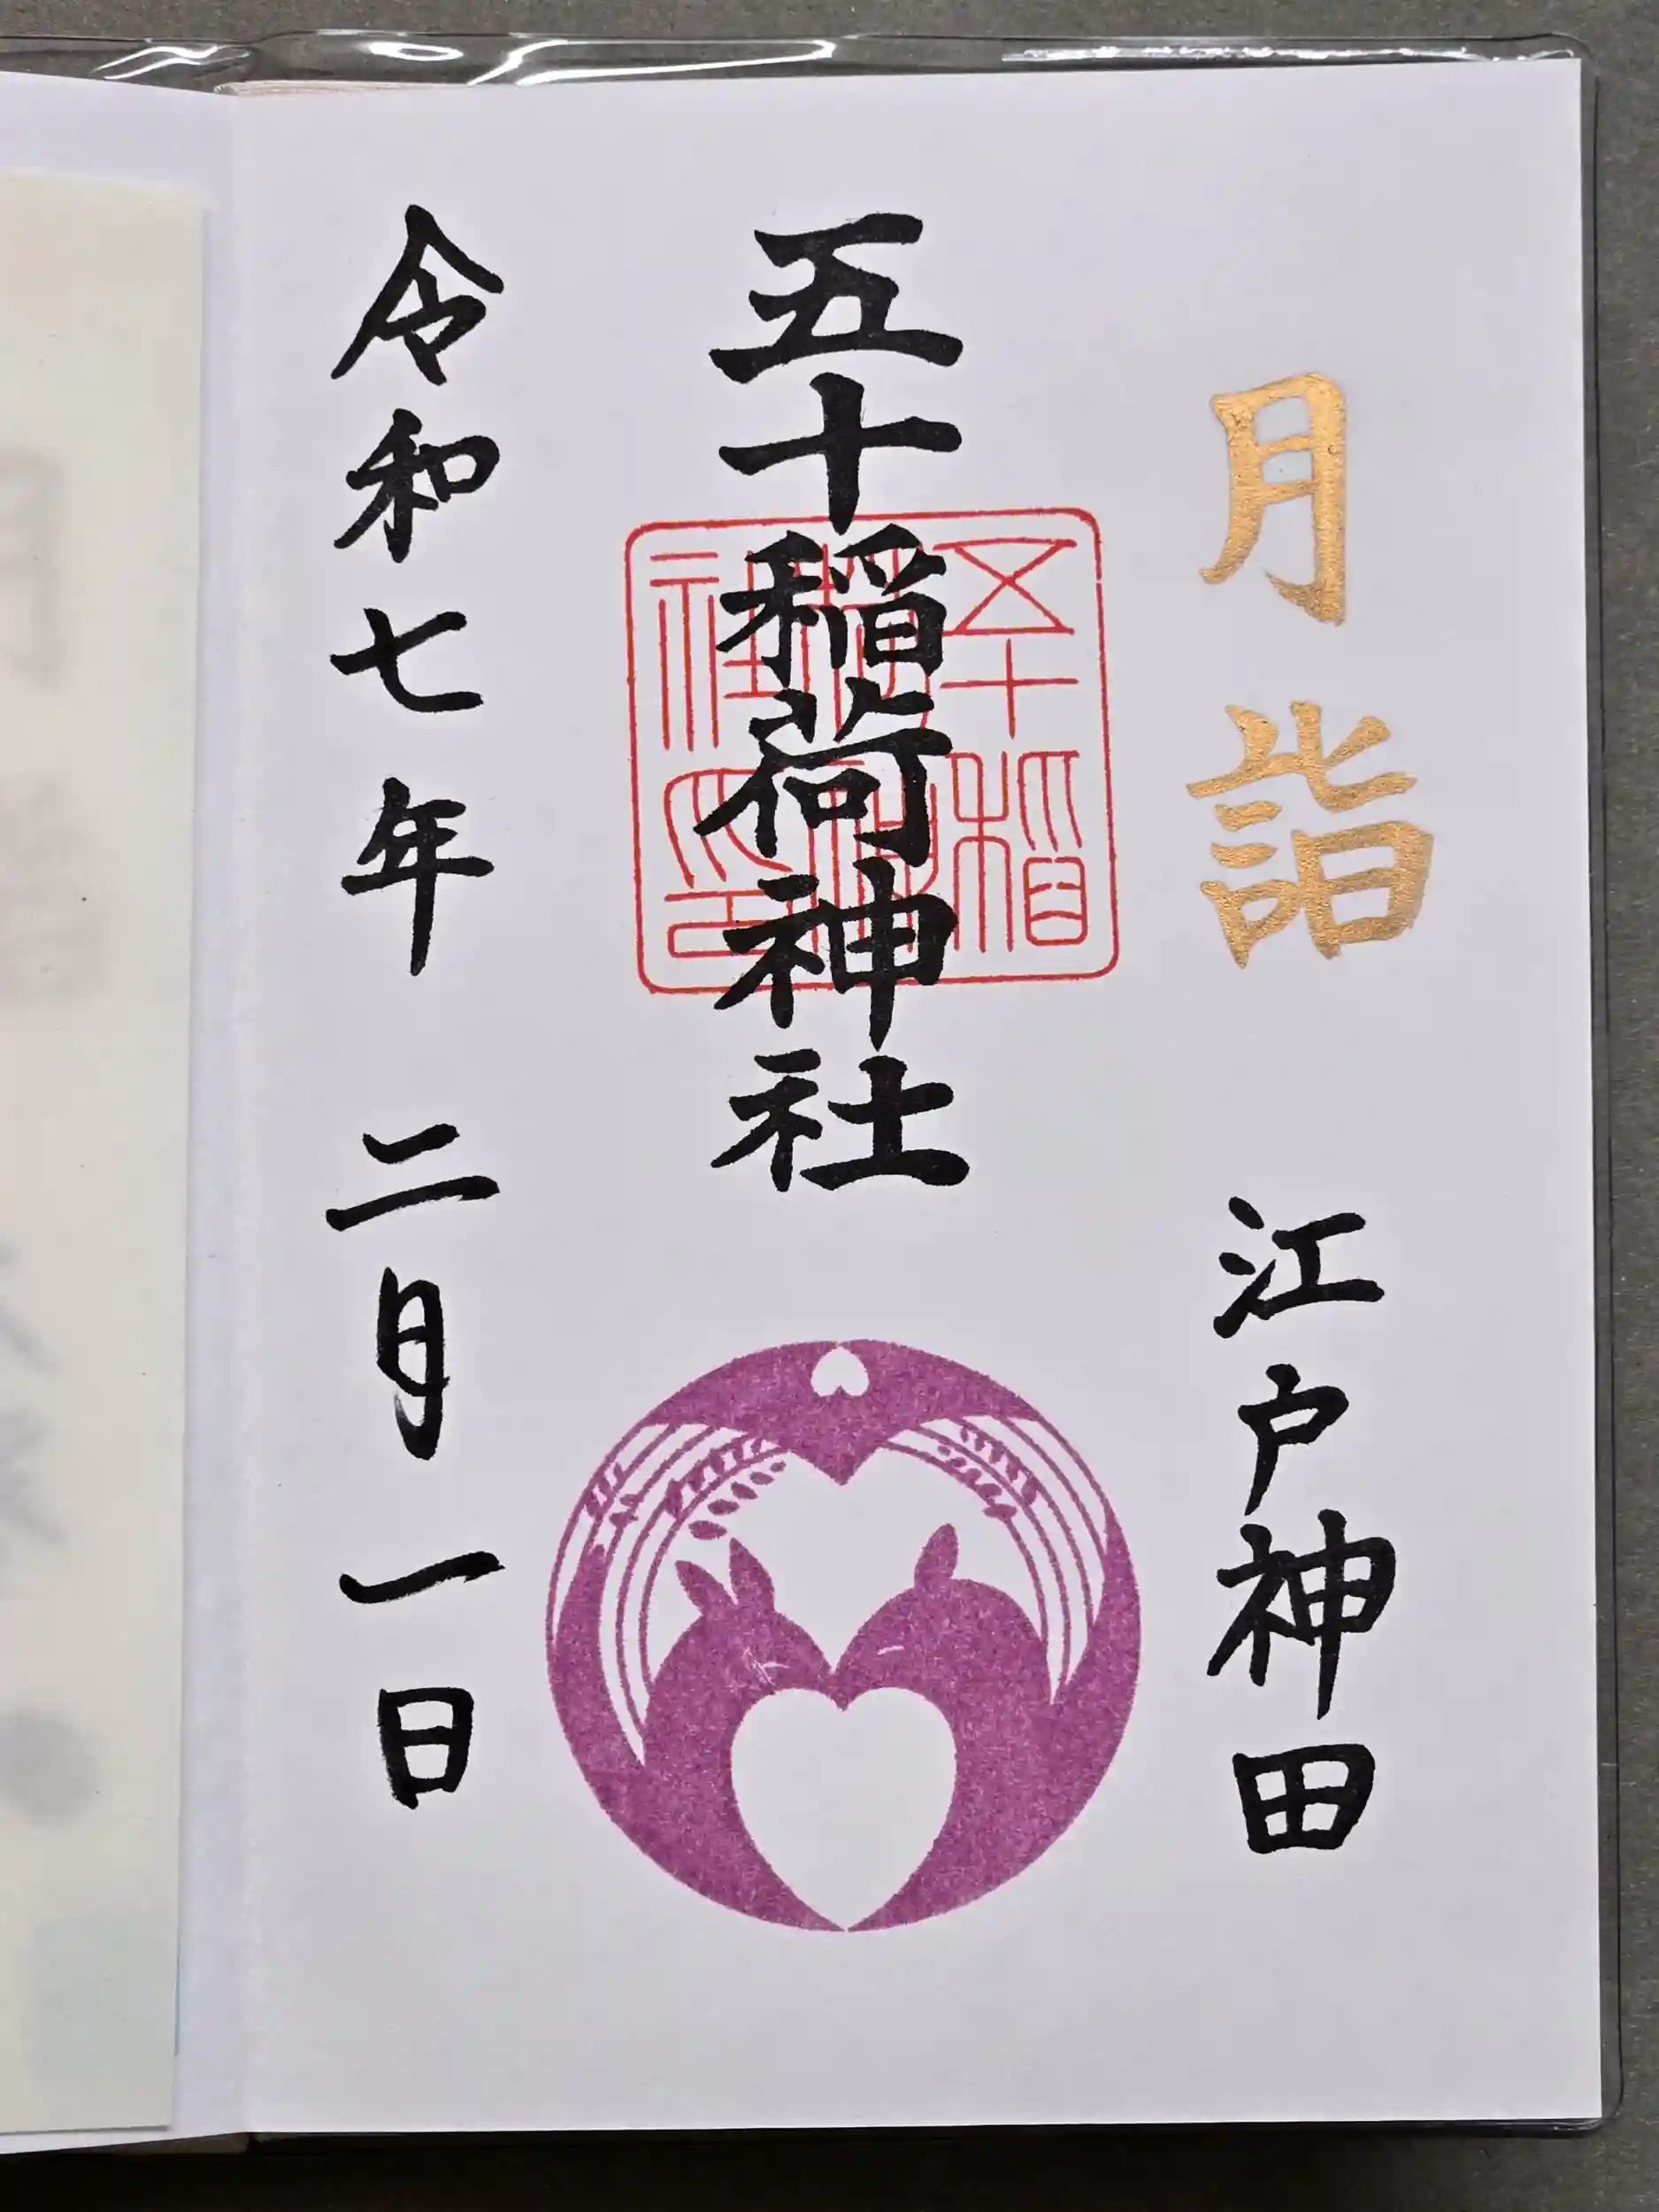 月詣
江戸神田
五十稲荷神社
五十稲荷神社印
令和七年 二月一日